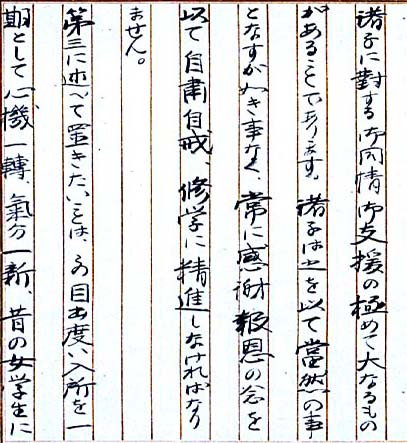 諸子に對する御同情、御支援の極めて大なるもの
があることであります。諸子は之を以て當然の事
となすが如き事なく、常に感謝報恩の念を
以て自肅自戒、修学に精進しなければなり
ません。
第三に述べて置きたいことは、今日の目出度い入所を一
期として心機一轉、氣分一新、昔の女学生に